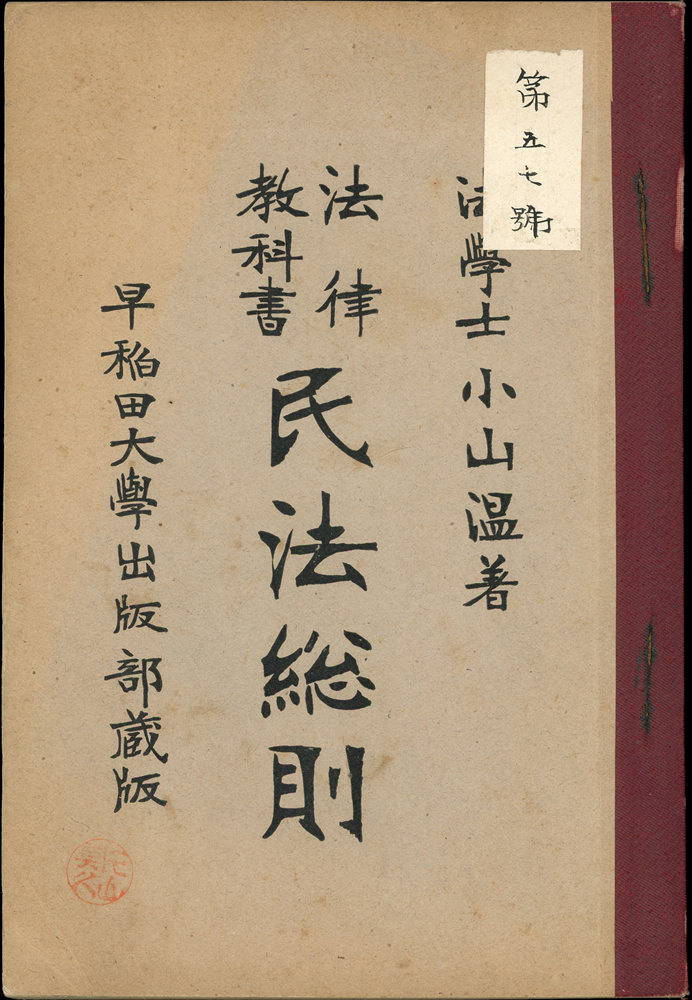 第五七號
法學士小山温著
法律
教科書
民法総則
早稲田大學出版部蔵版